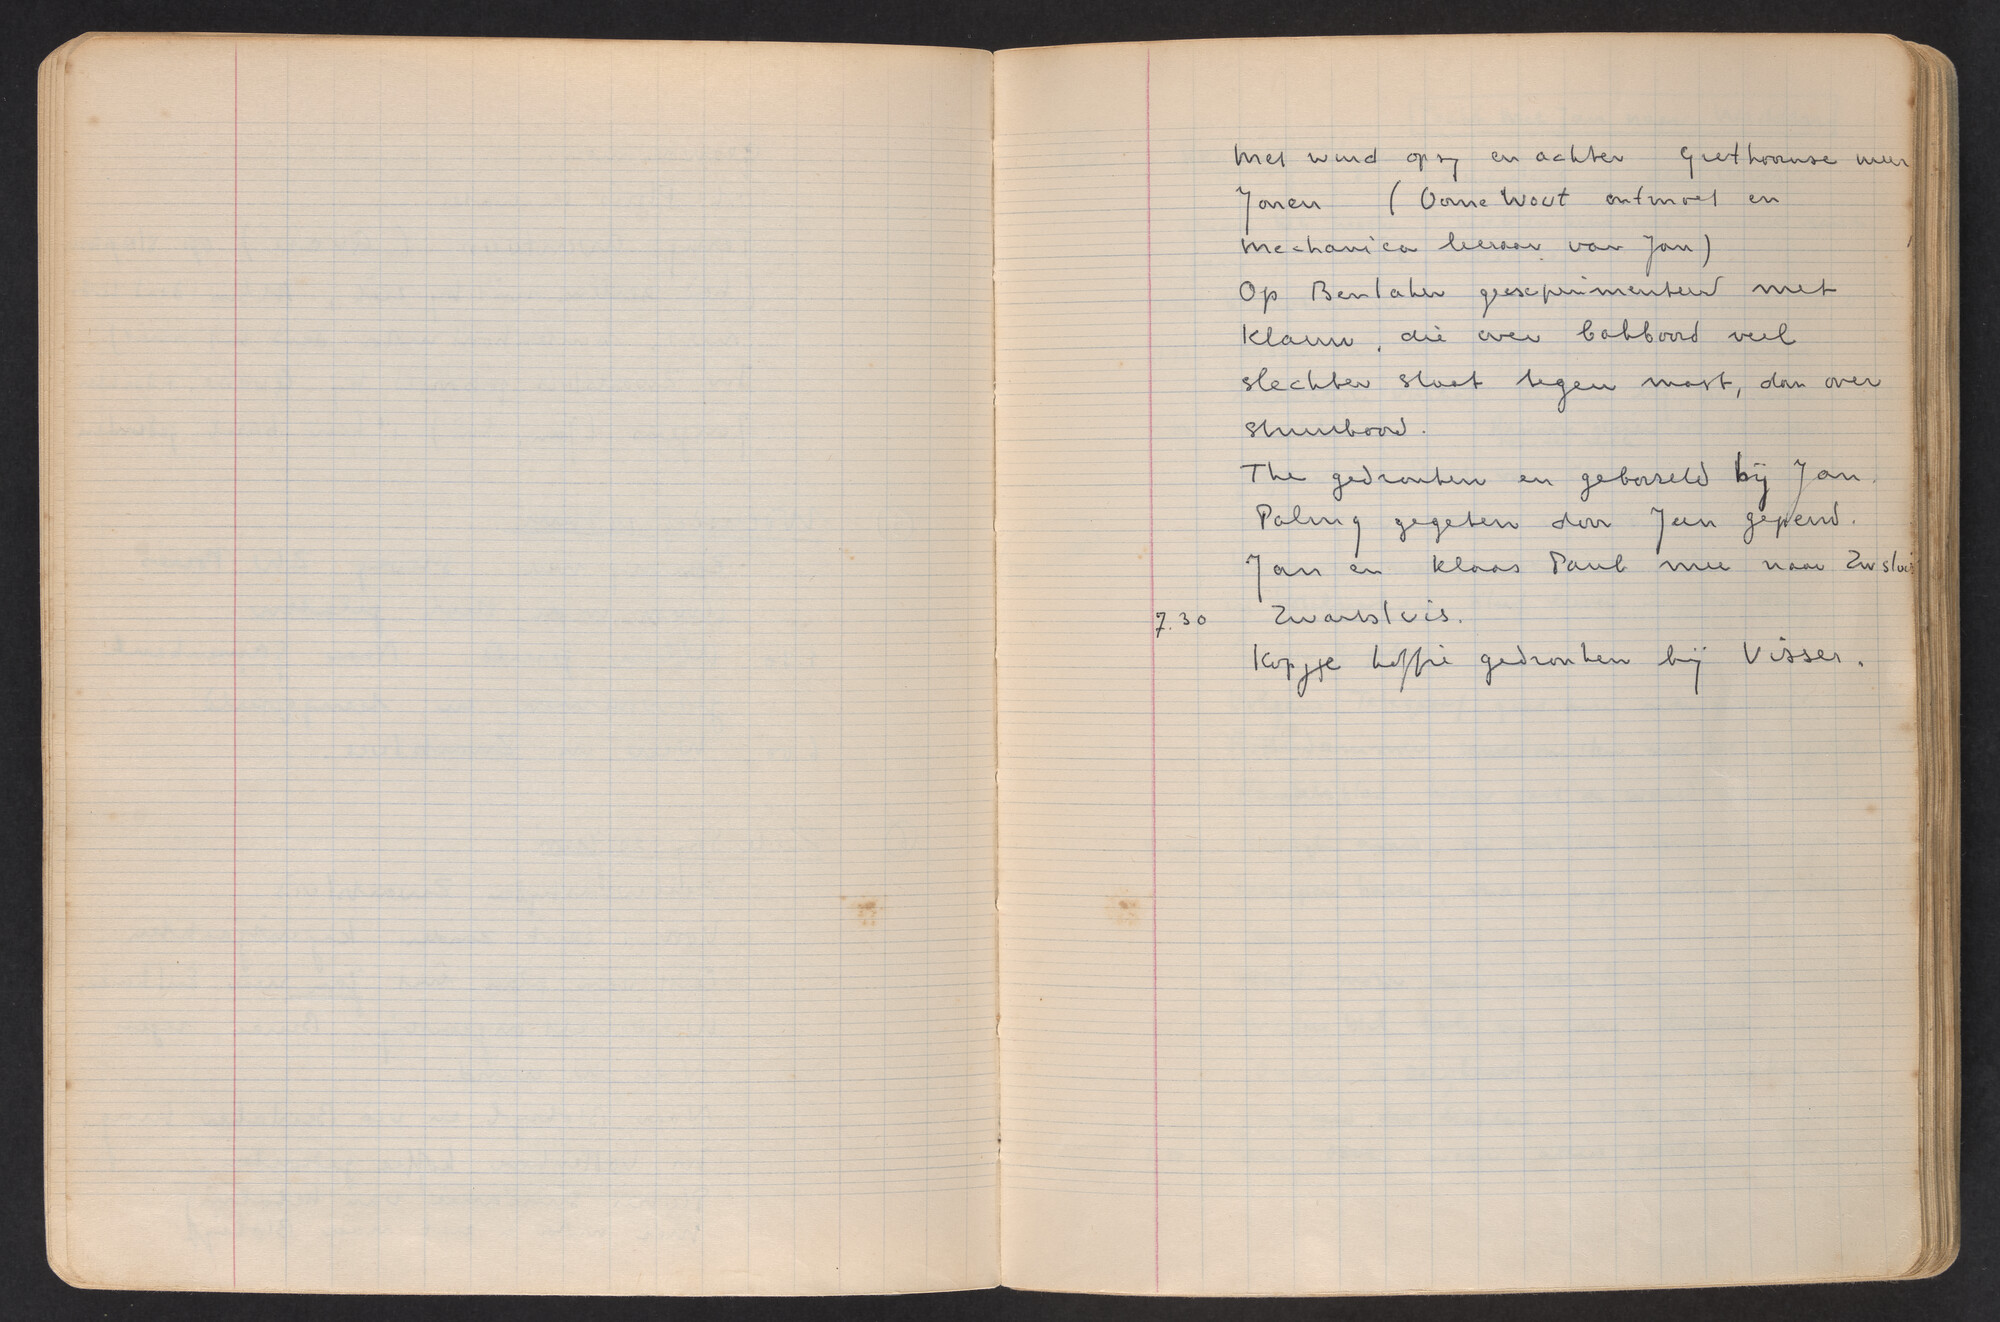 Met wind opzij en achter Giethoornse meer
Jonen (Oome Wout ontmoet en
mechanica leeraar van Jan)
Op Beulaker geexperimenteerd met
Klauw, die over bakboord veel
slechter staat tegen mast, dan over
stuurboord.
The gedronken en geborreld bij Jan.
Paling gegeten door Jan gepend.
Jan en Klaas Paul mee naar Zwsluis
7.30 Zwartsluis.
Kopje koffie gedronken bij Visser.